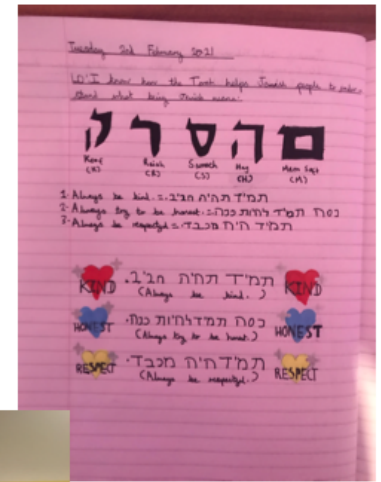 Tuesday 2nd February 2021
LO: I know how the Torah helps Jewish people to under
stand what being Jewish means.
ק ר ס ה ם
Raish Hay Mem
(K) (R) (S) (H) (M)
1. Always be kind. = תמיד תהיה חביב.
2. Always try to be honest. = נסה תמיד להיות כנה
3. Always be respectful = תמיד היה מכבד.
KIND תמיד תהיה חביב. KIND
(Always be kind.)
HONEST נסה תמיד להיות כנה. HONEST
(Always try to be honest.)
RESPECT תמיד היה מכבד. RESPECT
(Always be respectful.)